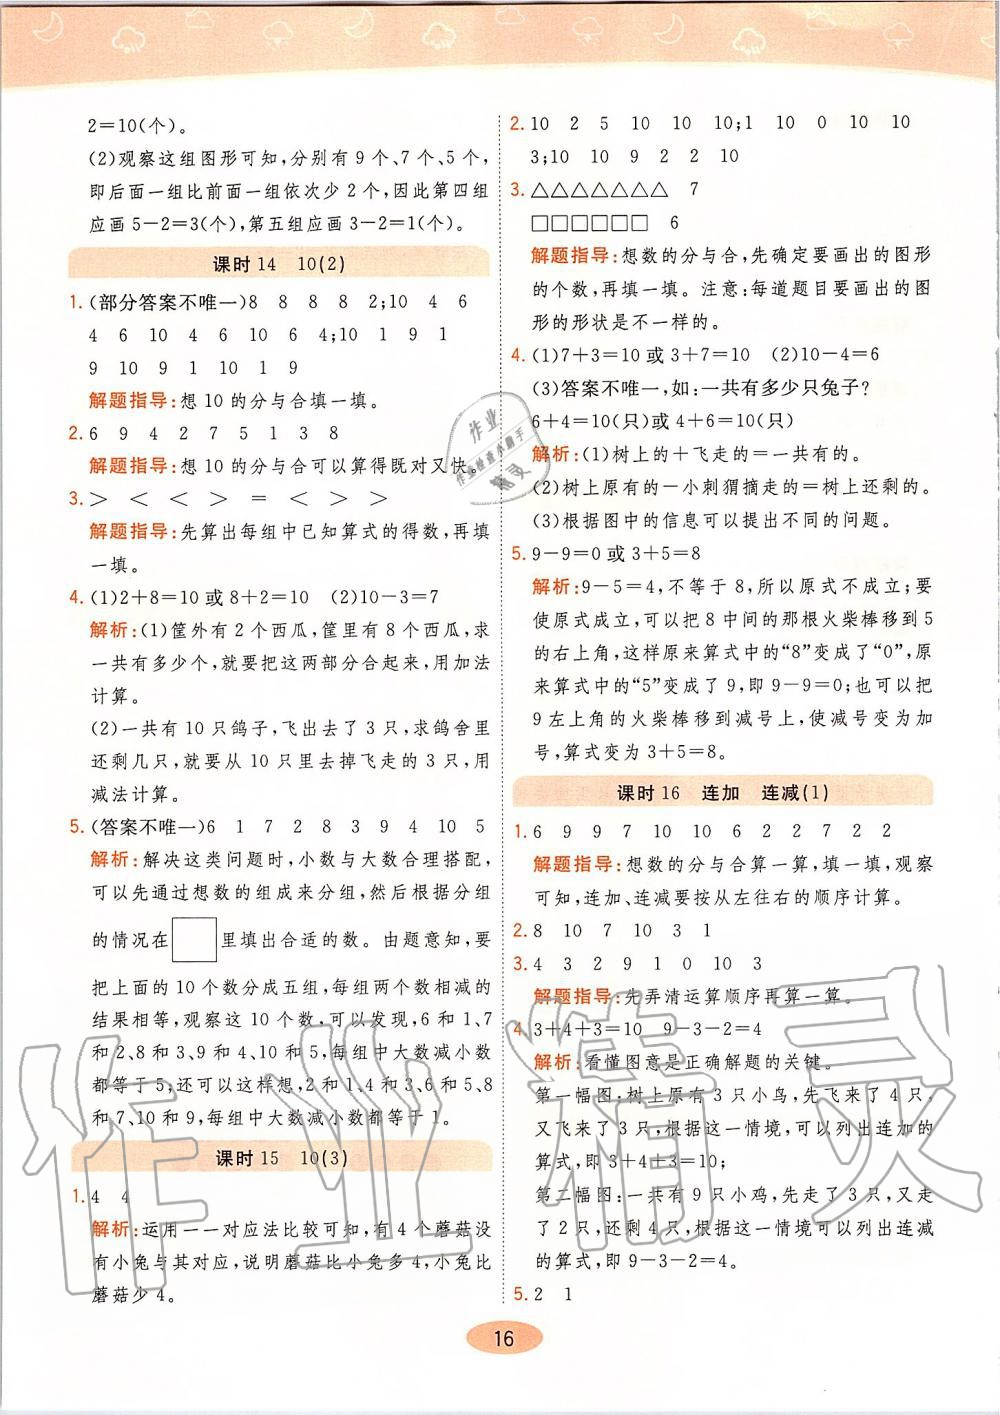 2=10(个)。
(2)观察这组图形可知,分别有 9 个、7 个、5 个,
即后面一组比前面一组依次少 2 个,因此第四组
应画 5-2=3(个),第五组应画 3-2=1(个)。
课时 14 10(2)
1.(部分答案不唯一)8 8 8 8 2;10 4 6
4 6 10 4 6 10 6 4;10 1 9 1
9 10 9 1 10 1 9
解题指导:想 10 的分与合填一填。
2. 6 9 4 2 7 5 1 3 8
解题指导:想 10 的分与合可以算得既对又快。
3. > < < > = < > >
解题指导:先算出每组中已知算式的得数,再填
一填。
4. (1)2+8=10 或 8+2=10 (2)10-3=7
解析:(1)筐外有 2 个西瓜,筐里有 8 个西瓜,求
一共有多少个,就要把这两部分合起来,用加法
计算。
(2)一共有 10 只鸽子,飞出去了 3 只,求鸽舍里
还剩几只,就要从 10 里面去掉飞走的 3 只,用
减法计算。
5.(答案不唯一)6 1 7 2 8 3 9 4 10 5
解析:解决这类问题时,小数与大数合理搭配,
可以先通过想数的组成来分组,然后根据分组
的情况在□里填出合适的数。由题意知,要
把上面的 10 个数分成五组,每组两个数相减的
结果相等,观察这 10 个数,可以发现,6 和 1、7
和 2、8 和 3、9 和 4、10 和 5,每组中大数减小数
都等于 5;还可以这样想,2 和 1、4 和 3、6 和 5、8
和 7、10 和 9,每组中大数减小数都等于 1。
课时 15 10(3)
1. 4 4
解析:运用一一对应法比较可知,有 4 个蘑菇没
有小兔与其对应,说明蘑菇比小兔多 4,小兔比
蘑菇少 4。
2. 10 2 5 10 10 10;1 10 0 10 10
3;10 10 9 2 2 10
3. △△△△△△△ 7
□□□□□□ 6
解题指导:想数的分与合,先确定要画出的图形
的个数,再填一填。注意:每道题目要画出的图
形的形状是不一样的。
4. (1)7+3=10 或 3+7=10 (2)10-4=6
(3)答案不唯一,如:一共有多少只兔子?
6+4=10(只)或 4+6=10(只)
解析:(1)树上的+飞走的=一共有的。
(2)树上原有的-小刺猬摘走的=树上还剩的。
(3)根据图中的信息可以提出不同的问题。
5. 9-9=0 或 3+5=8
解析:9-5=4,不等于 8,所以原式不成立;要
使原式成立,可以把 8 中间的那根火柴棒移到 5
的右上角,这样原来算式中的“8”变成了“0”,原
来算式中的“5”变成了 9,即 9-9=0;也可以把
9 左上角的火柴棒移到减号上,使减号变为加
号,算式变为 3+5=8。
课时 16 连加 连减(1)
1. 6 9 9 7 10 10 6 2 2 7 2 2
解题指导:想数的分与合算一算,填一填,观察
可知,连加、连减要按从左往右的顺序计算。
2. 8 10 7 10 3 1
3. 4 3 2 9 1 0 10 3
解题指导:先弄清运算顺序再算一算。
4. 3+4+3=10 9-3-2=4
解析:看懂图意是正确解题的关键。
第一幅图:树上原有 3 只小鸟,先飞来了 4 只,
又飞来了 3 只,根据这一情境,可以列出连加的
算式,即 3+4+3=10;
第二幅图:一共有 9 只小鸡,先走了 3 只,又走
了 2 只,还剩 4 只,根据这一情境可以列出连减
的算式,即 9-3-2=4。
5. 2 1
16
作业
作业检查小帮手
精灵
作业精灵